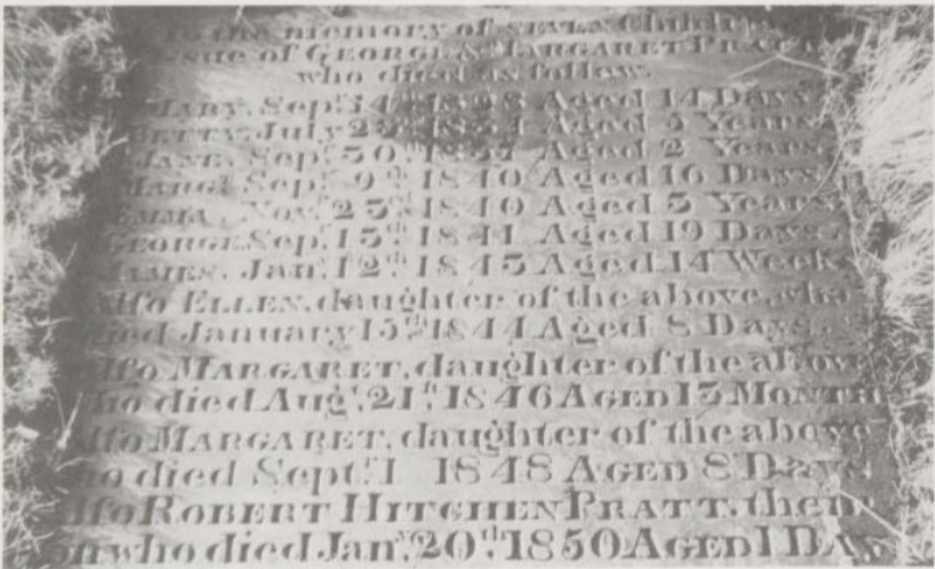 to the memory of SEVEN Children
issue of GEORGE & MARGARET PRATT
who died as follow.
MARY. Sep.t 14th 1828 Aged 14 Days
BETTY. July Aged Years
JANE. Sep.t 30th Aged 2 Years
MARG.t Sep.t 9th 1840 Aged 16 Days
EMMA. Nov.r 1840 Aged Years
GEORGE. Sep.t 1841 Aged 19 Days
JAMES. Jan.y 12th Aged 14 Week
Alſo ELLEN, daughter of the above, who
died January 1844 Aged 8 Days.
Alſo MARGARET, daughter of the above
who died Aug.t 21st 1846 AGED 13 MONTH
Alſo MARGARET, daughter of the above
who died Sept.r 1 1848 AGED 8 Days
Alſo ROBERT HITCHEN PRATT, their
on who died Jan.y 20th 1850 AGED 1 DAY